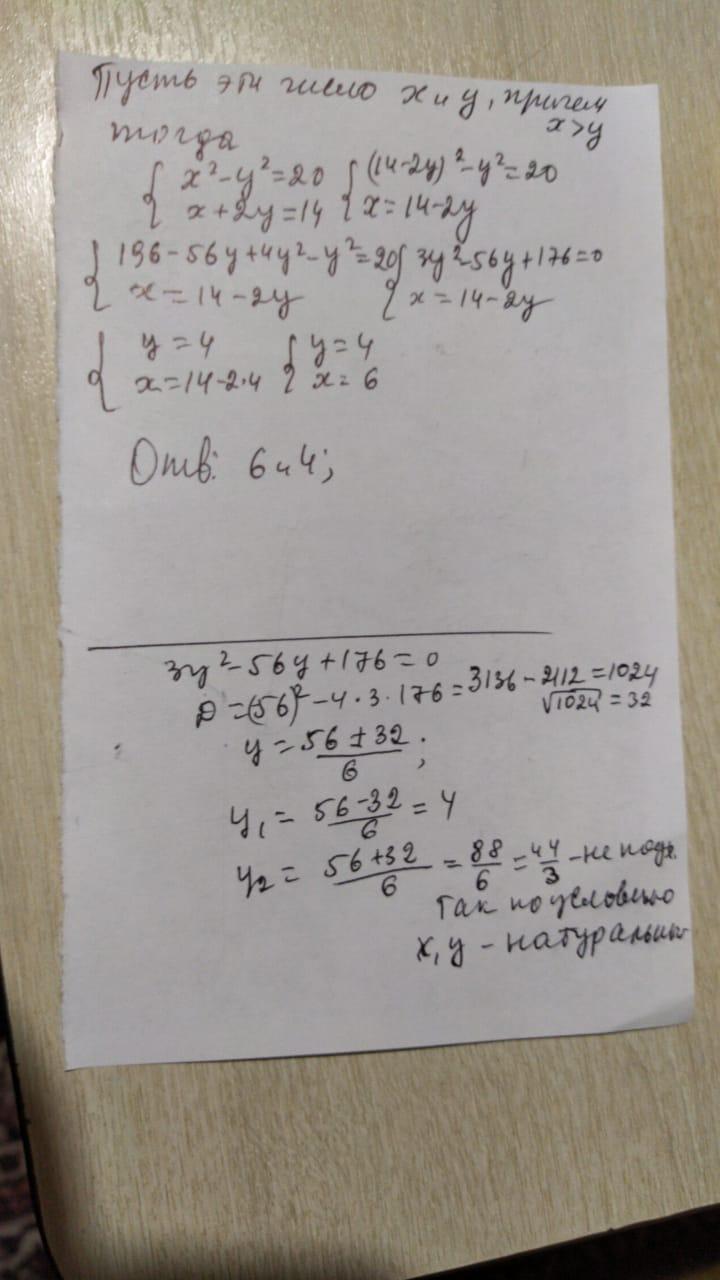 Пусть эти число x и y, причем
x>y
тогда
{ x²-y²=20 { (14-2y)²-y²=20
x+2y=14 x=14-2y
{ 196-56y+4y²-y²=20 { 3y²-56y+176=0
x=14-2y x=14-2y
{ y=4 { y=4
x=14-2·4 x=6
Отв: 6 и 4;
3y²-56y+176=0
D=(56)²-4·3·176=3136-2112=1024
√1024=32
y=56±32/6;
y₁=56-32/6=4
y₂=56+32/6=88/6=44/3-не подх.
так по условию
x,y-натуральны